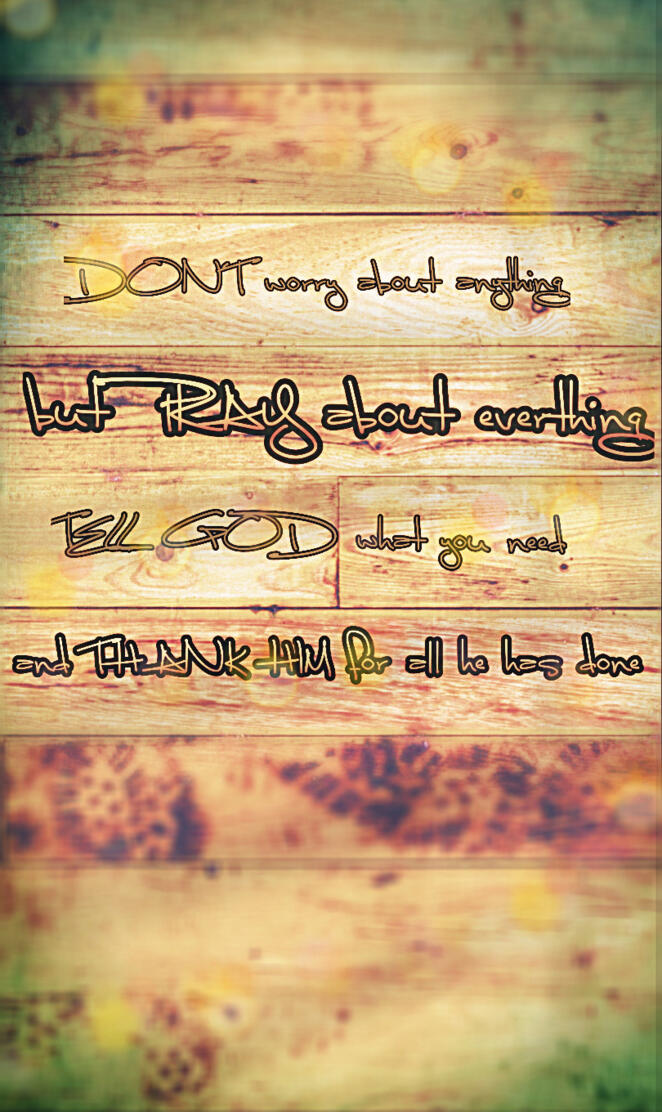 DONT worry about anything
but PRAY about everthing
TELL GOD what you need
and THANK HIM for all he has done